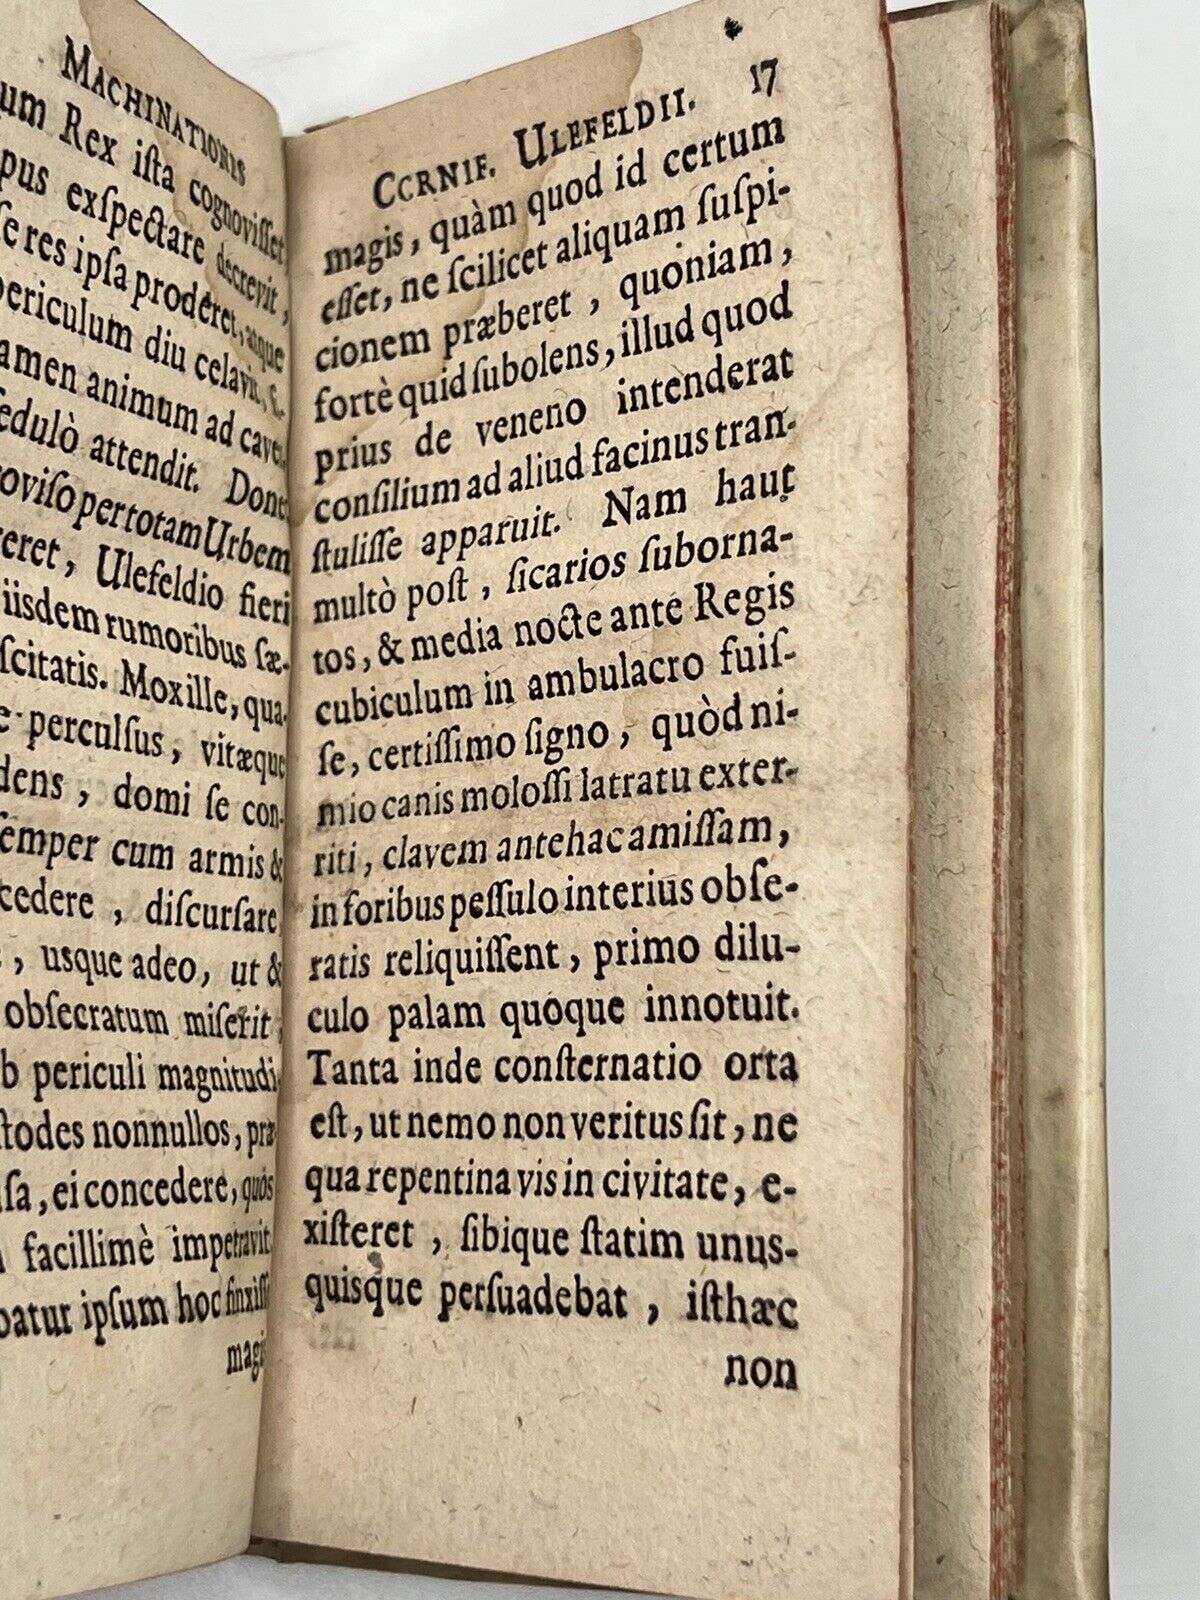 MACHINATIONIS
um Rex iſta cognoviſſet,
pus exſpectare decrevit,
ſe res ipſa proderet, atque
periculum diu celavit, &
amen animum ad cave-
ſedulò attendit. Donec
oviſo per totam Urbem
eret, Ulefeldio fieri
iiſdem rumoribus ſæ-
ſcitatis. Moxille, qua-
e perculſus, vitæque
dens, domi ſe con-
ſemper cum armis &
cedere, diſcurſare,
, usque adeo, ut &
obſecratum miſerit,
b periculi magnitudi-
ſtodes nonnullos, præ
ſa, ei concedere, quós
facillimè impetravit
batur ipſum hoc finxiſſe
magis
CCRNIF. ULEFELDII. 17
magis, quàm quod id certum
eſſet, ne ſcilicet aliquam ſuſpi-
cionem præberet, quoniam,
fortè quid ſubolens, illud quod
prius de veneno intenderat
conſilium ad aliud facinus tran-
ſtuliſſe apparuit. Nam haut
multò poſt, ſicarios ſuborna-
tos, & media nocte ante Regis
cubiculum in ambulacro fuiſ-
ſe, certiſſimo ſigno, quòd ni-
mio canis moloſſi latratu exter-
riti, clavem antehac amiſſam,
in foribus peſſulo interius obſe-
ratis reliquiſſent, primo dilu-
culo palam quoque innotuit.
Tanta inde conſternatio orta
eſt, ut nemo non veritus ſit, ne
qua repentina vis in civitate, e-
xiſteret, ſibique ſtatim unus-
quisque perſuadebat, iſthæc
non